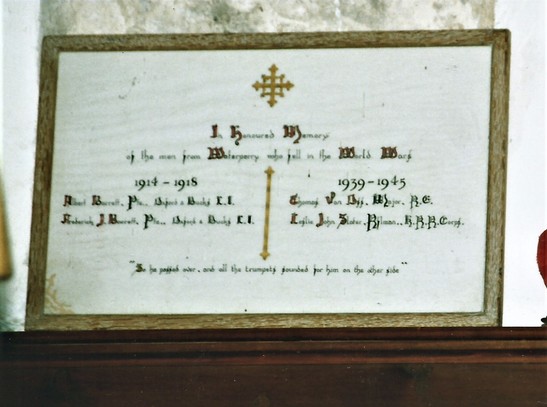 In Honoured Memory
of the men from Waterperry who fell in the World Wars
1914 – 1918
Albert Barrett, Pte., Oxford & Bucks L.I.
Frederick J. Barrett, Pte., Oxford & Bucks L.I.
1939 – 1945
Thomas Van Oss, Major, R.E.
Leslie John Slater, Rflman., K.R.R. Corps.
"So he passed over, and all the trumpets sounded for him on the other side"